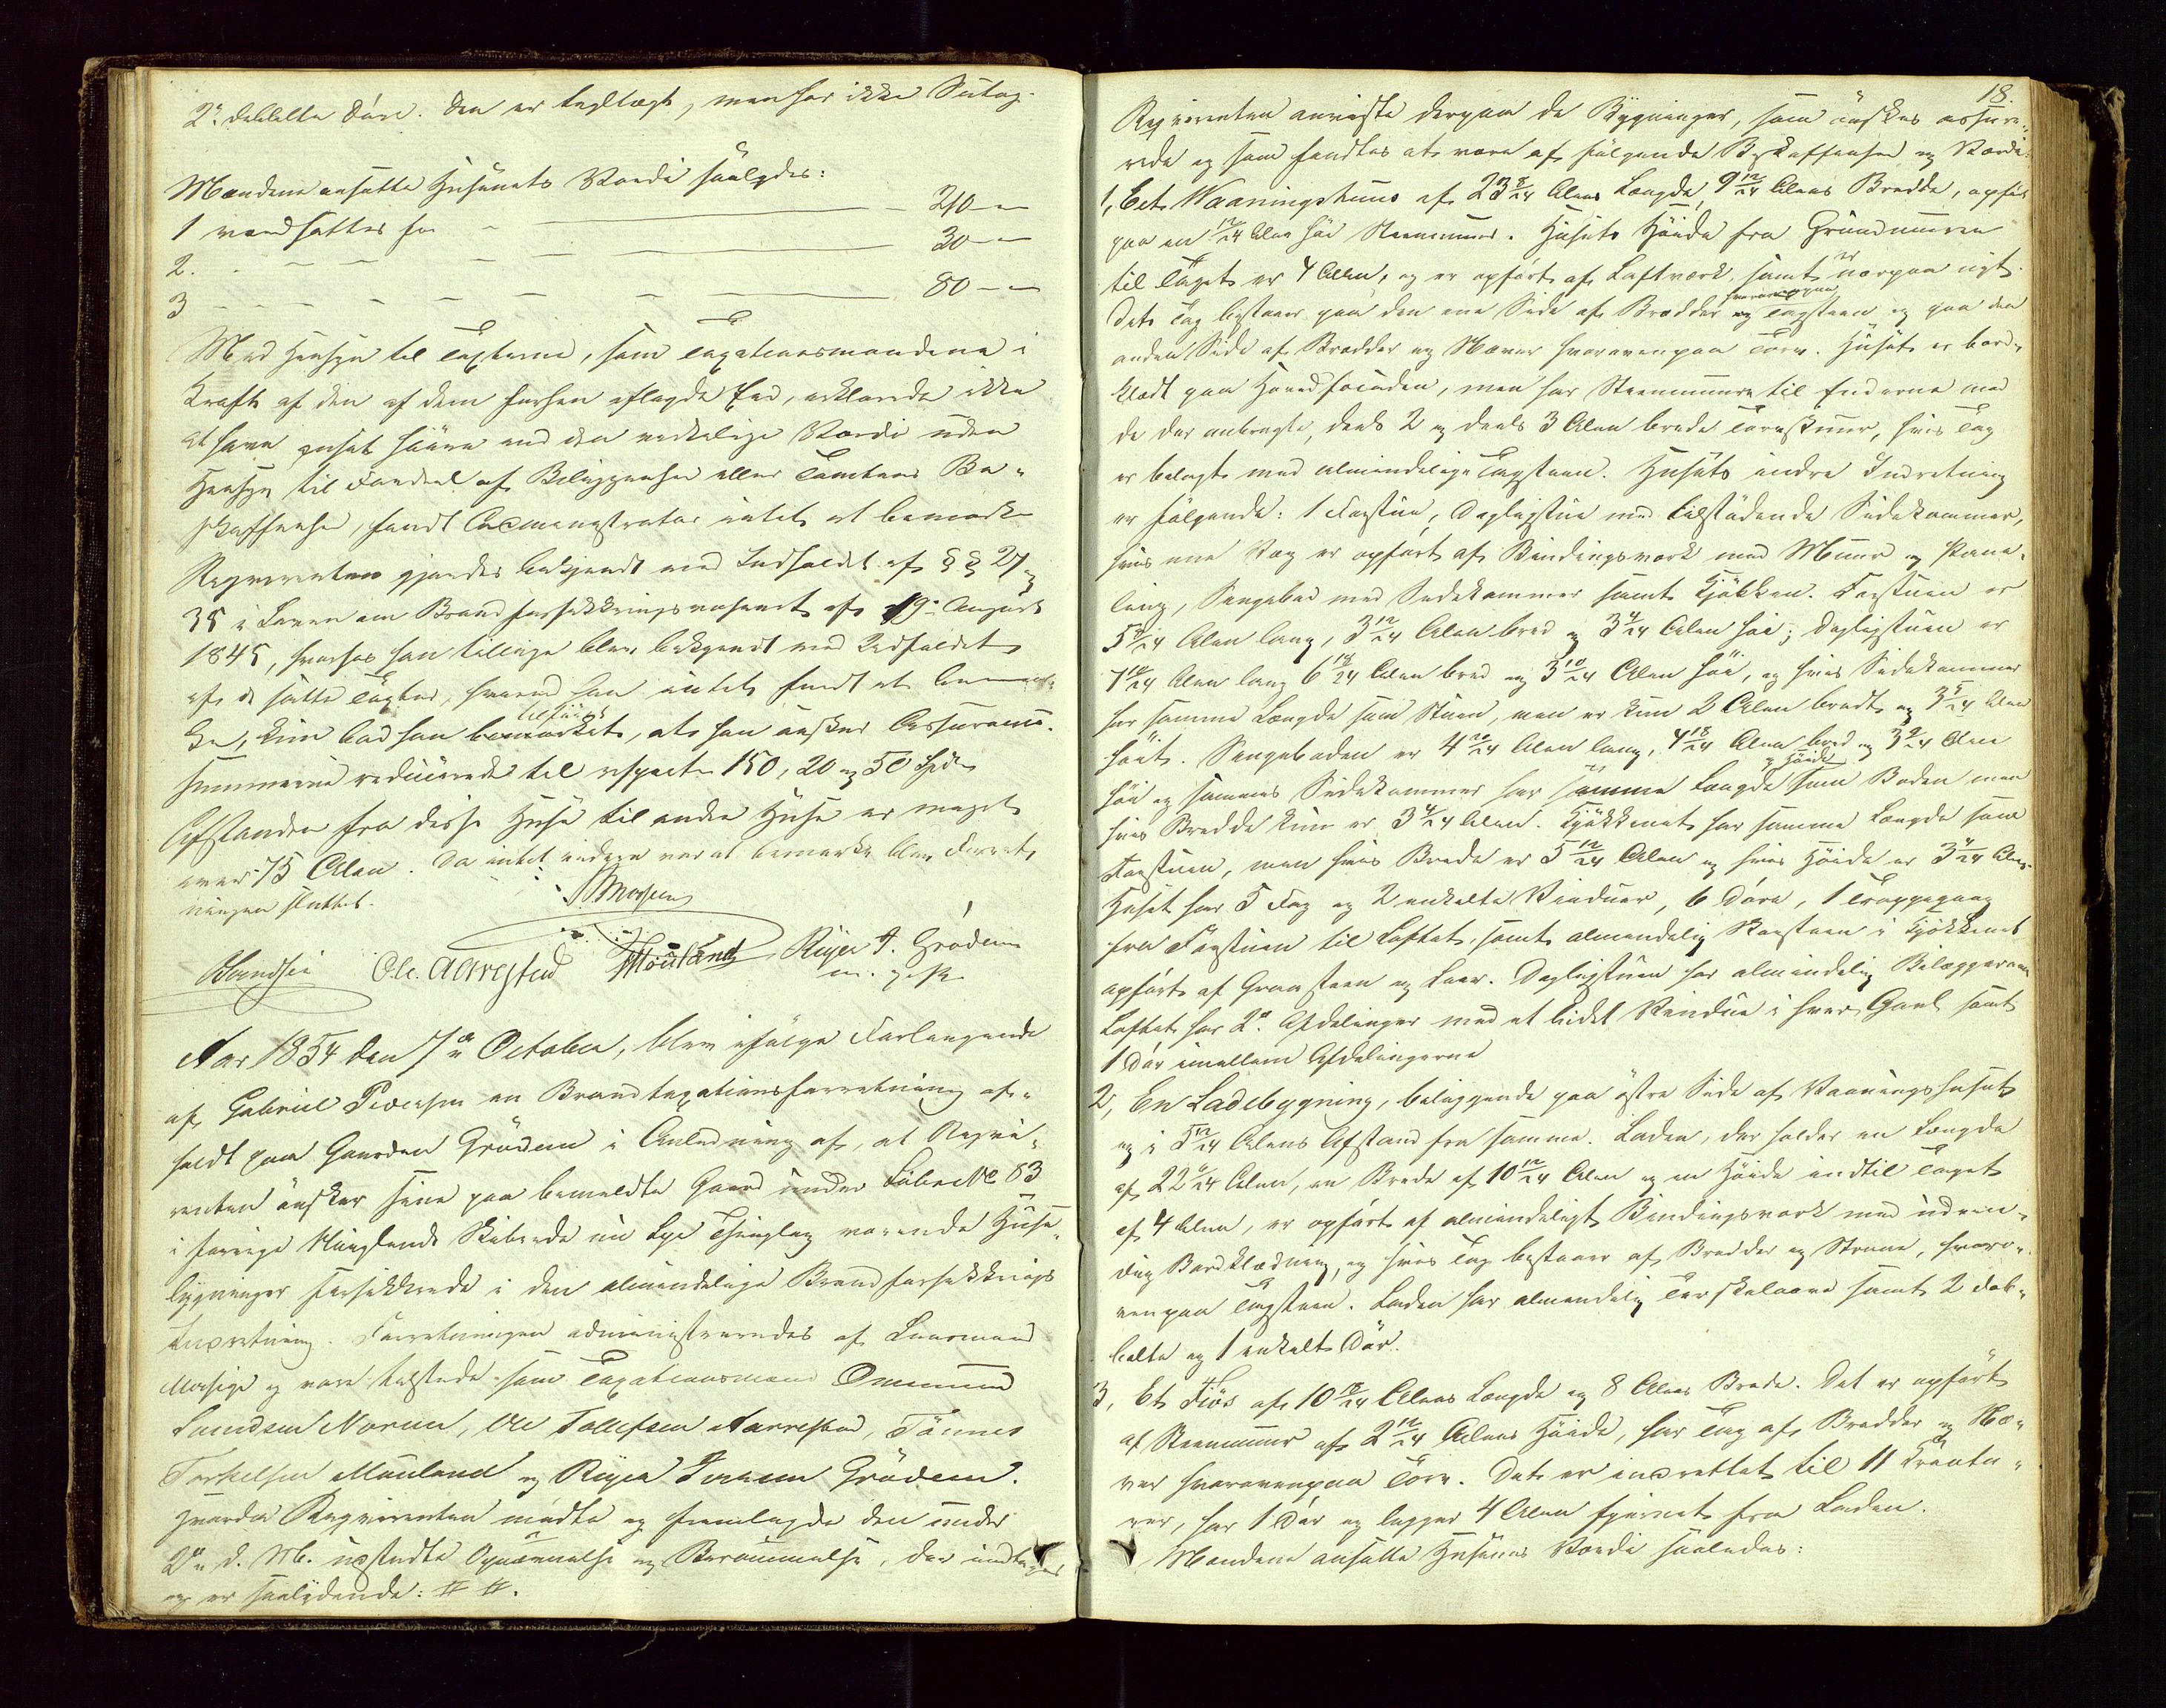 2de dobbelte Döre. Den er tæktlagt, men har ikke
Mændene ansatte Husenets Værdi saaledes:
1 værdsattes for - 240 -
2. - 30 -
3 - 80 -
Med Hensyn til Taxterne, som Taxationsmændene i
Kraft af den af dem forhen aflagde Eed, erklærede ikke
at have ansat höiere end den virkelige Værdi uden
Hensyn til Fordeel af Beliggenhed eller Tomtens Be-
skaffenhed, fandt Administrator intet at bemærke
Reqvirenten gjordes bekjendt med Indholdet af §§ 27 og
35 i Loven om Brandforsikkringsvæsenet af 19de August
1845, hvorhos han tillige blev bekjendt med Indholdet
af de satte Taxter, hvorved han intet fandt at bemær-
ke, kun bad han tilföiet bemærket, at han önsker Assurance-
summerne reducerede til respective 150, 20 og 50 Spd.
Afstanden fra disse Huse til andre Huse er meget
over 75 Alen. Da intet videre var at bemærke blev Forret-
ningen sluttet.
Ole Aarrestad Mouland Reyer T. Grödem
m. p. P.
Aar 1854 den 7de October, blev ifölge Forlangende
af Gabriel Pedersen en Brandtaxationsforretning af-
holdt paa Gaarden Grödem i Anledning af, at Reqvi-
renten önsker sine paa bemeldte Gaard under Löbe No 83
i forrige Haaglands Skibrede nu Lye Thinglag værende Huse-
bygninger forsikkrede i den almindelige Brandforsikkrings
Indretning. Forretningen administreredes af Lensmand
Mossige og vare tilstede som Taxationsmænd Ommund
Lundsen Norem, Ole Tollefsen Aarrestad, Tönnes
Torkelsen Mouland og Reyer Grödem.
Hvorda Reqvirenten mödte og fremlagde den under
2den d. M. udstedte Opnævnelse og Berammelse, der indtages
og er saalydende: # #.
18.
Reqvirenten anviste derpaa de Bygninger, som önskes assure-
rede og som fandtes at være af fölgende Beskaffenhed og Værdi:
1, Eet Vaaningshuus af 23 8/24 Alens Længde, 9 12/24 Alens Bredde, opfört
paa en 12/24 Alen höi Steenmuur. Husets Höide fra Grundmuren
til Taget er 4 Alen, og er opfört af Laftværk, samt er nærpaa nyt.
Dets Tag bestaaer paa den ene Side af Brædder hvorovenpaa Tagsteen og paa den
anden Side af Brædder og Næver hvorovenpaa Torv. Huset er bord-
klædt paa Hovedfacaden, men har Steenmure til Enderne med
de der anbragte, deels 2 og deels 3 Alen brede Torvskuur, hvis Tag
er belagt med almindelige Tagsteen. Husets indre Indretning
er fölgende: 1 Forstue, Dagligstue med tilstödende Sidekammer,
hvis ene Væg er opfört af Bindingsværk med Muur og Pane-
ling, Sengebod med Sidekammer samt Kjökken. Forstuen er
5 4/24 Alen lang, 3 12/24 Alen bred og 3 4/24 Alen höi; Dagligstuen er
7 18/24 Alen lang 6 18/24 Alen bred og 3 10/24 Alen höi, og hvis Sidekammer
har samme Længde som Stuen, men er kun 2 Alen bredt og 3 5/24 Alen
höit. Sengeboden er 4 20/24 Alen lang, 4 18/24 Alen bred og 3 2/24 Alen
höi og sammes Sidekammer har samme Længde og Höide som Boden men
hvis Bredde kun er 3 4/24 Alen. Kjökkenet har samme Længde som
Forstuen, men hvis Brede er 5 12/24 Alen og hvis Höide er 3 4/24 Alen.
Huset har 5 Fag og 2 enkelte Vinduer, 6 Döre, 1 Trappegang
fra Forstuen til Loftet, samt almindelig Skorsteen i Kjökkenet
opfört af Graasteen og Leer. Dagligstuen har almindelig Bilæggerovn
Loftet har 2de Afdelinger med et lidet Vindue i hver Gavl samt
1 Dör imellem Afdelingerne
2, En Ladebygning, beliggende paa östre Side af Vaaningshuset
og i 5 12/24 Alens Afstand fra samme. Laden, der holder en Længde
af 22 6/24 Alen, en Brede af 10 12/24 Alen og en Höide indtil Taget
af 4 Alen, er opfört af almindeligt Bindingsværk med udven-
dig Bordklædning, og hvis Tag bestaaer af Brædder og Straae, hvoro-
venpaa Tagsteen. Laden har almindelig Tærskelaave samt 2 dob-
belte og 1 enkelt Dör.
3, Et Fiös af 10 18/24 Alens Længde og 8 Alens Brede. Det er opfört
af Steenmuur af 2 12/24 Alens Höide, har Tag af Brædder og Næ-
ver hvorovenpaa Torv. Det er indrettet til 11 Kreatu-
rer, har 1 Dör og ligger 4 Alen fjernet fra Laden.
Mændene ansatte Husenes Værdi saaledes: